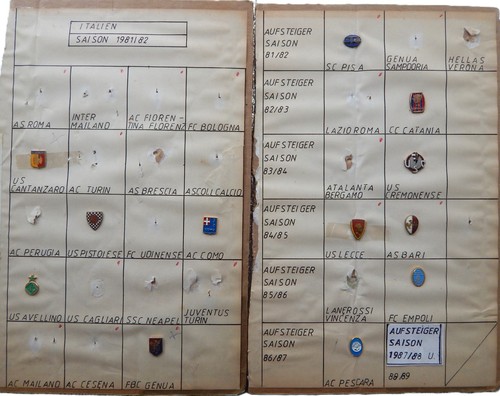 ITALIEN
SAISON 1981/82
AS ROMA
INTER
MAILAND
AC FIOREN-
TINA FLORENZ
FC BOLOGNA
US
CANTANZARO
AC TURIN
AS BRESCIA
ASCOLI CALCIO
AC PERUGIA
US PISTOIESE
FC UDINENSE
AC COMO
US AVELLINO
US CAGLIARI
SSC NEAPEL
JUVENTUS
TURIN
AC MAILAND
AC CESENA
FBC GENUA
AUFSTEIGER
SAISON
81/82
SC PISA
GENUA
SAMPDORIA
HELLAS
VERONA
AUFSTEIGER
SAISON
82/83
LAZIO ROMA
CC CATANIA
AUFSTEIGER
SAISON
83/84
ATALANTA
BERGAMO
US
CREMONENSE
AUFSTEIGER
SAISON
84/85
US LECCE
AS BARI
AUFSTEIGER
SAISON
85/86
LANEROSSI
VINCENZA
FC EMPOLI
AUFSTEIGER
SAISON
86/87
AC PESCARA
AUFSTEIGER
SAISON
1987/88 U.
88/89